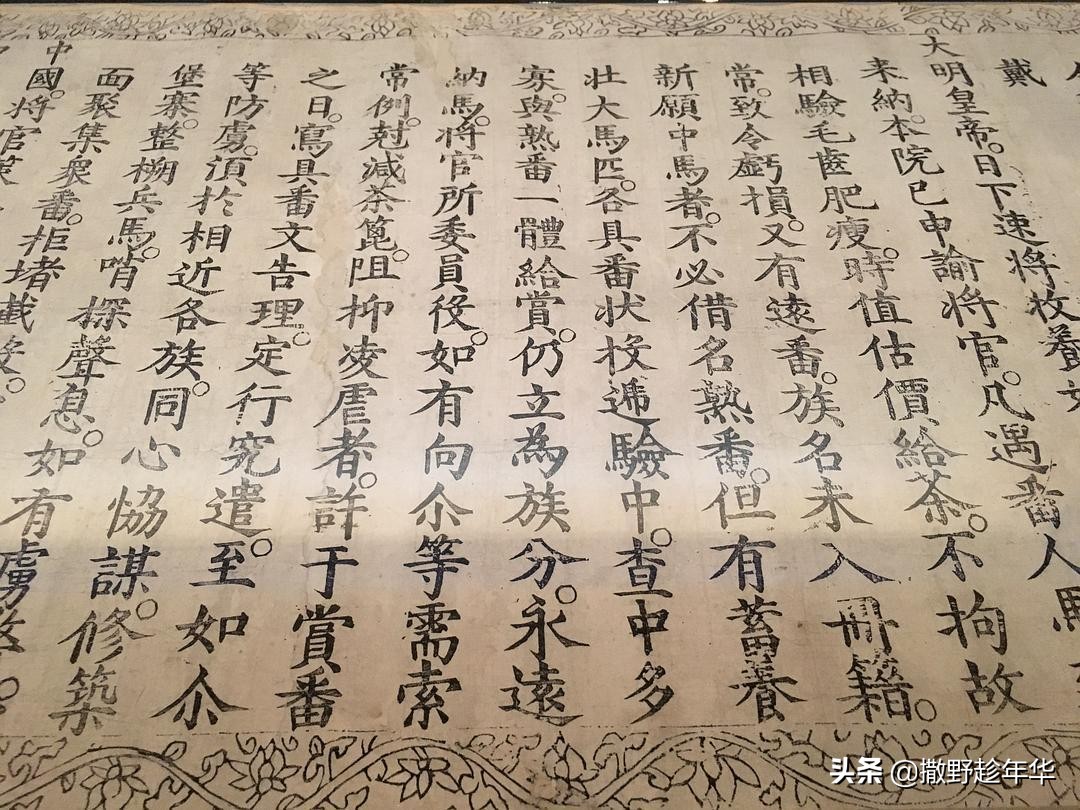 戴
大明皇帝。日下速將牧養好
来納。本院已申諭將官。凡遇番人馬
相驗毛齒肥瘦。時值估價給茶。不拘故
常。致令虧損。又有遠番。族名未入冊籍。
新願中馬者。不必借名熟番。但有蓄養
壮大馬匹。各具番状投遞驗中。查中多
寡。與熟番一體給賞。仍立為族分。永遠
納馬。將官所委員役。如有向尒等需索
常例。尅減茶篦。阻抑凌虐者。許于賞番
之日。寫具番文告理。定行究遣。至如尒
等防虜。須於相近各族。同心恊謀。修築
堡寨。整搠兵馬。哨探聲息。如有虜
面聚集衆番。拒堵截殺。
中國。將官策
头条 @撒野趁年华